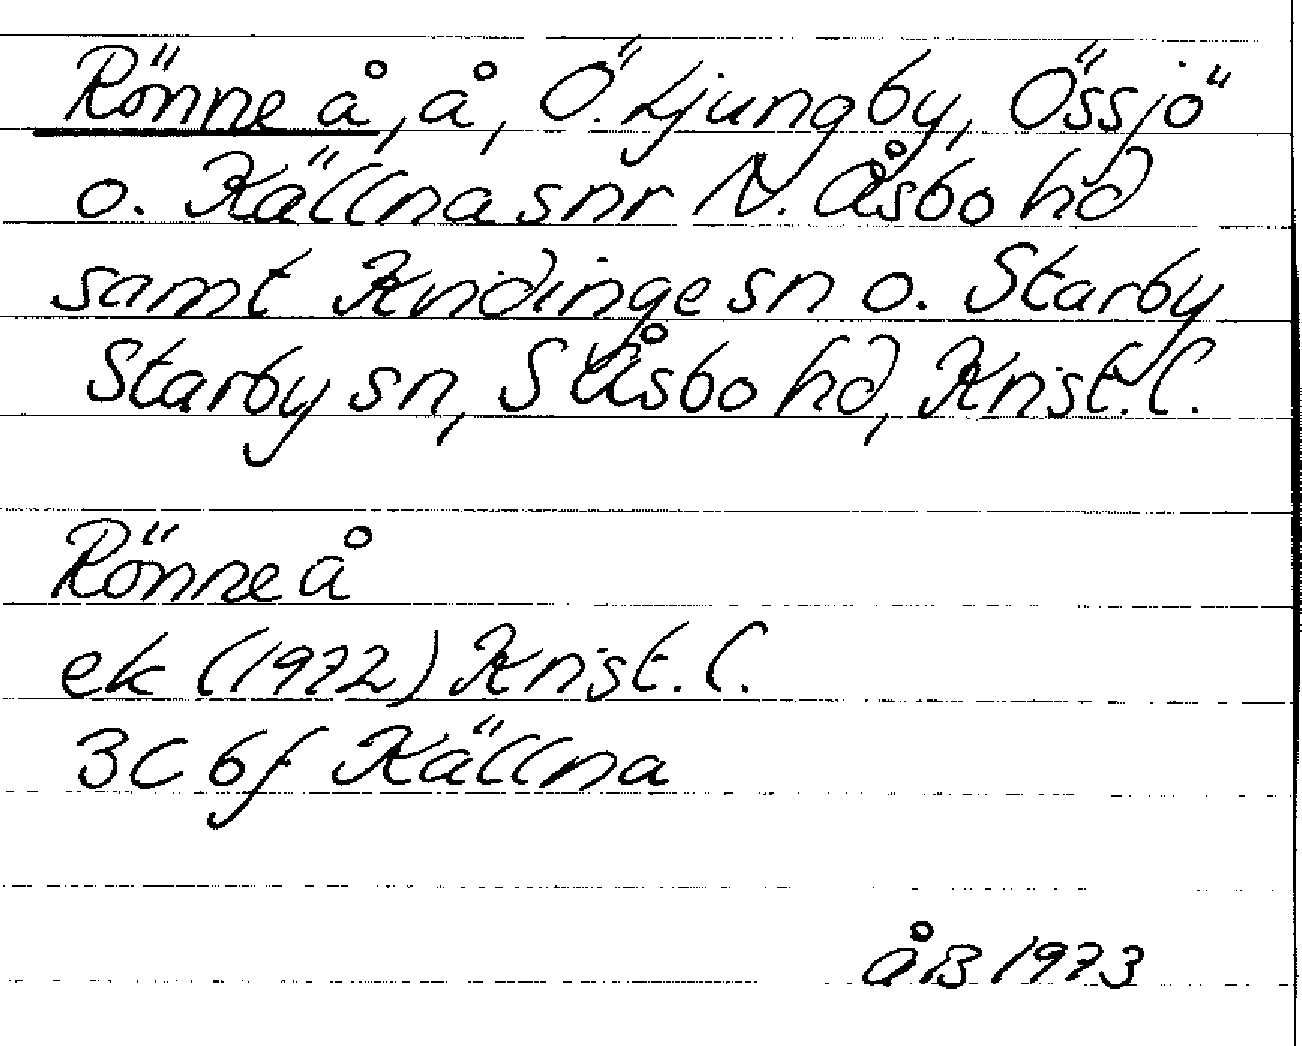 Rönne å, å, Ö. Ljungby, Össjö
o. Källna snr N. Åsbo hd
samt Kvidinge sn o. Starby
Starby sn, S Åsbo hd, Krist. l.
Rönne å
ek (1972) Krist. l.
3C 6f Källna
åB 1973